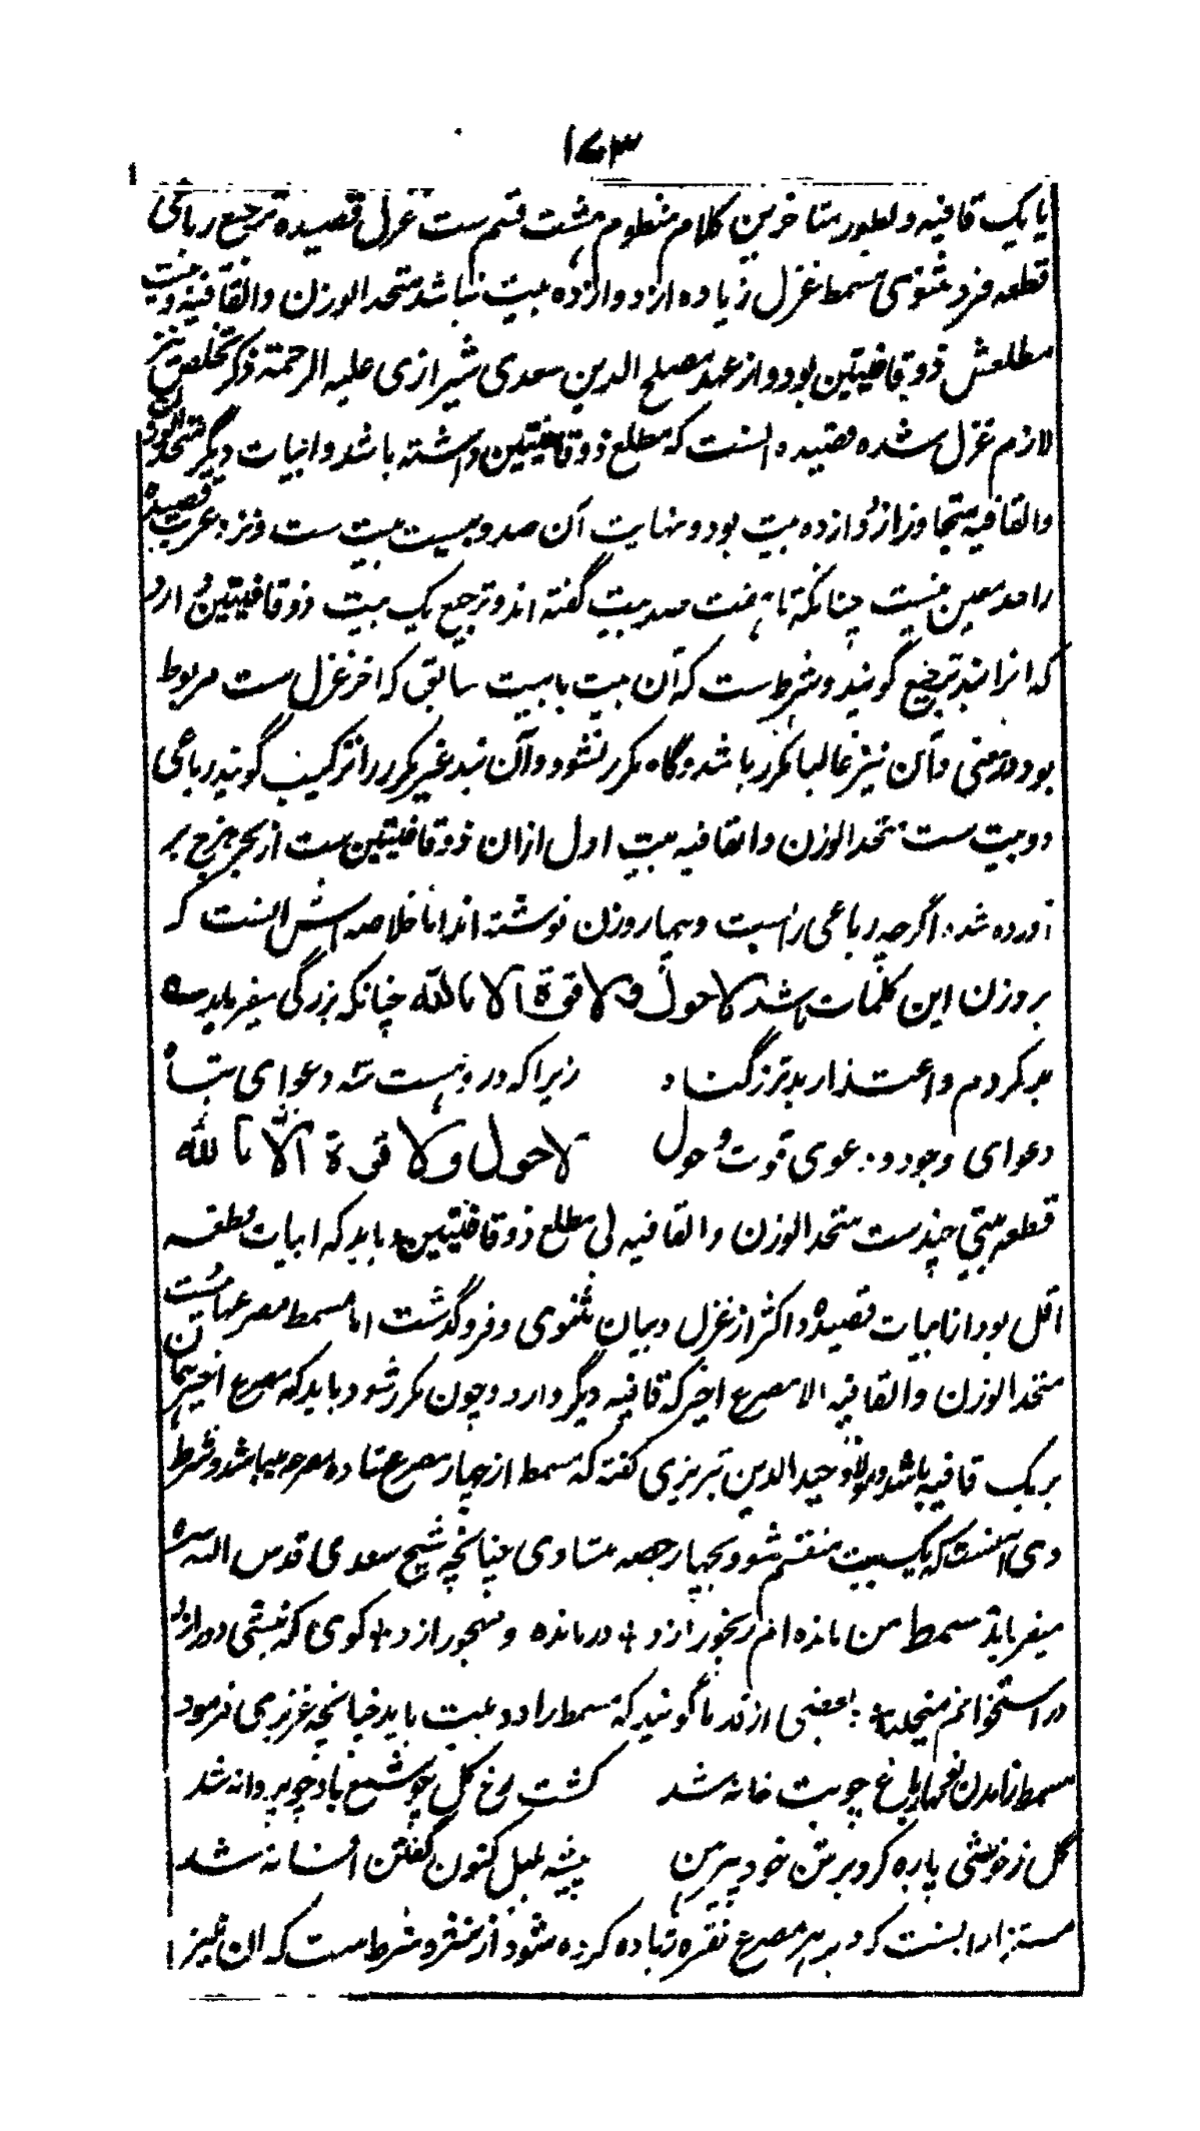 ۱۷۳
یا یک قافیه و بطور متاخرین کلام منظوم هشت قسم ست غزل قصیده ترجیع رباعی
قطعه فرد مثنوی مسمط غزل زیاده از دوازده بیت نباشد متحد الوزن والقافیه و بیت
مطلعش ذوقافیتین بود و از عهد مصلح الدین سعدی شیرازی علیه الرحمة ذکر تخلص نیز
لازم غزل شده قصیده آنست که مطلع ذوقافیتین داشته باشد و ابیات دیگر متحد الوزن
والقافیه متجاوز از دوازده بیت بود و نهایت آن صد و بیست بیت ست و نزد عرب قصیده
را حد معین نیست چنانکه تا هفت صد بیت گفته اند و ترجیع یک بیت ذوقافیتین دارد
که انرا بند ترجیع گویند و شرط ست که آن بیت با بیت سابق که اخر غزل ست مربوط
بود در معنی و آن نیز غالبا مکرر باشد و گاه مکرر نشود و آن بند غیر مکرر را ترکیب گویند رباعی
دو بیت ست متحد الوزن والقافیه بیت اول ازان ذوقافیتین ست از بحر هزج بر
آورده شد اگرچه رباعی را بست و چهار وزن نوشته اند اما خلاصه اش انست که
بر وزن این کلمات باشد لا حول ولا قوة الا بالله چنانکه بزرگی میفرماید
بد کردم و اعتذار بدتر ز گناه زیرا که درو هست سه دعوای تباه
دعوای وجود و دعوی قوت و حول لا حول ولا قوة الا بالله
قطعه بیتی چندست متحد الوزن والقافیه بی مطلع ذوقافیتین و باید که ابیات قطعه
اقل بود از ابیات قصیده و اکثر از غزل و بیان مثنوی و فرو گذشت اما مسمط مصرعهاست
متحد الوزن والقافیه الا مصرع اخیر که قافیه دیگر دارد و چون مکرر شود باید که مصرع اخیر
بر یک قافیه باشد و مولانا وحید الدین تبریزی گفته که مسمط از چهار مصرع تا ده مصرع میباشد و شرط
وی آنست که یک بیت منقسم شود بچهار حصه متساوی چنانچه شیخ سعدی قدس الله سره
میفرماید مسمط من مانده ام رنجور ازو + درمانده و مهجور ازو + گوی که نیشی دور ازو
در استخوانم میخلد بعضی از قدما گویند که مسمط را دو بیت باید چنانچه عزیزی فرمود
مسمط ز امدن باغ چو بت خانه شد گشت رخ گل چو شمع باد چو پروانه شد
گل ز خوشی پاره کرد بر تن خود پیرهن پیشه بلبل کنون گفتن افسانه شد
مستزاد انست که در هر مصرع فقره زیاده کرده شود از نثر و شرط ست که ان نیز